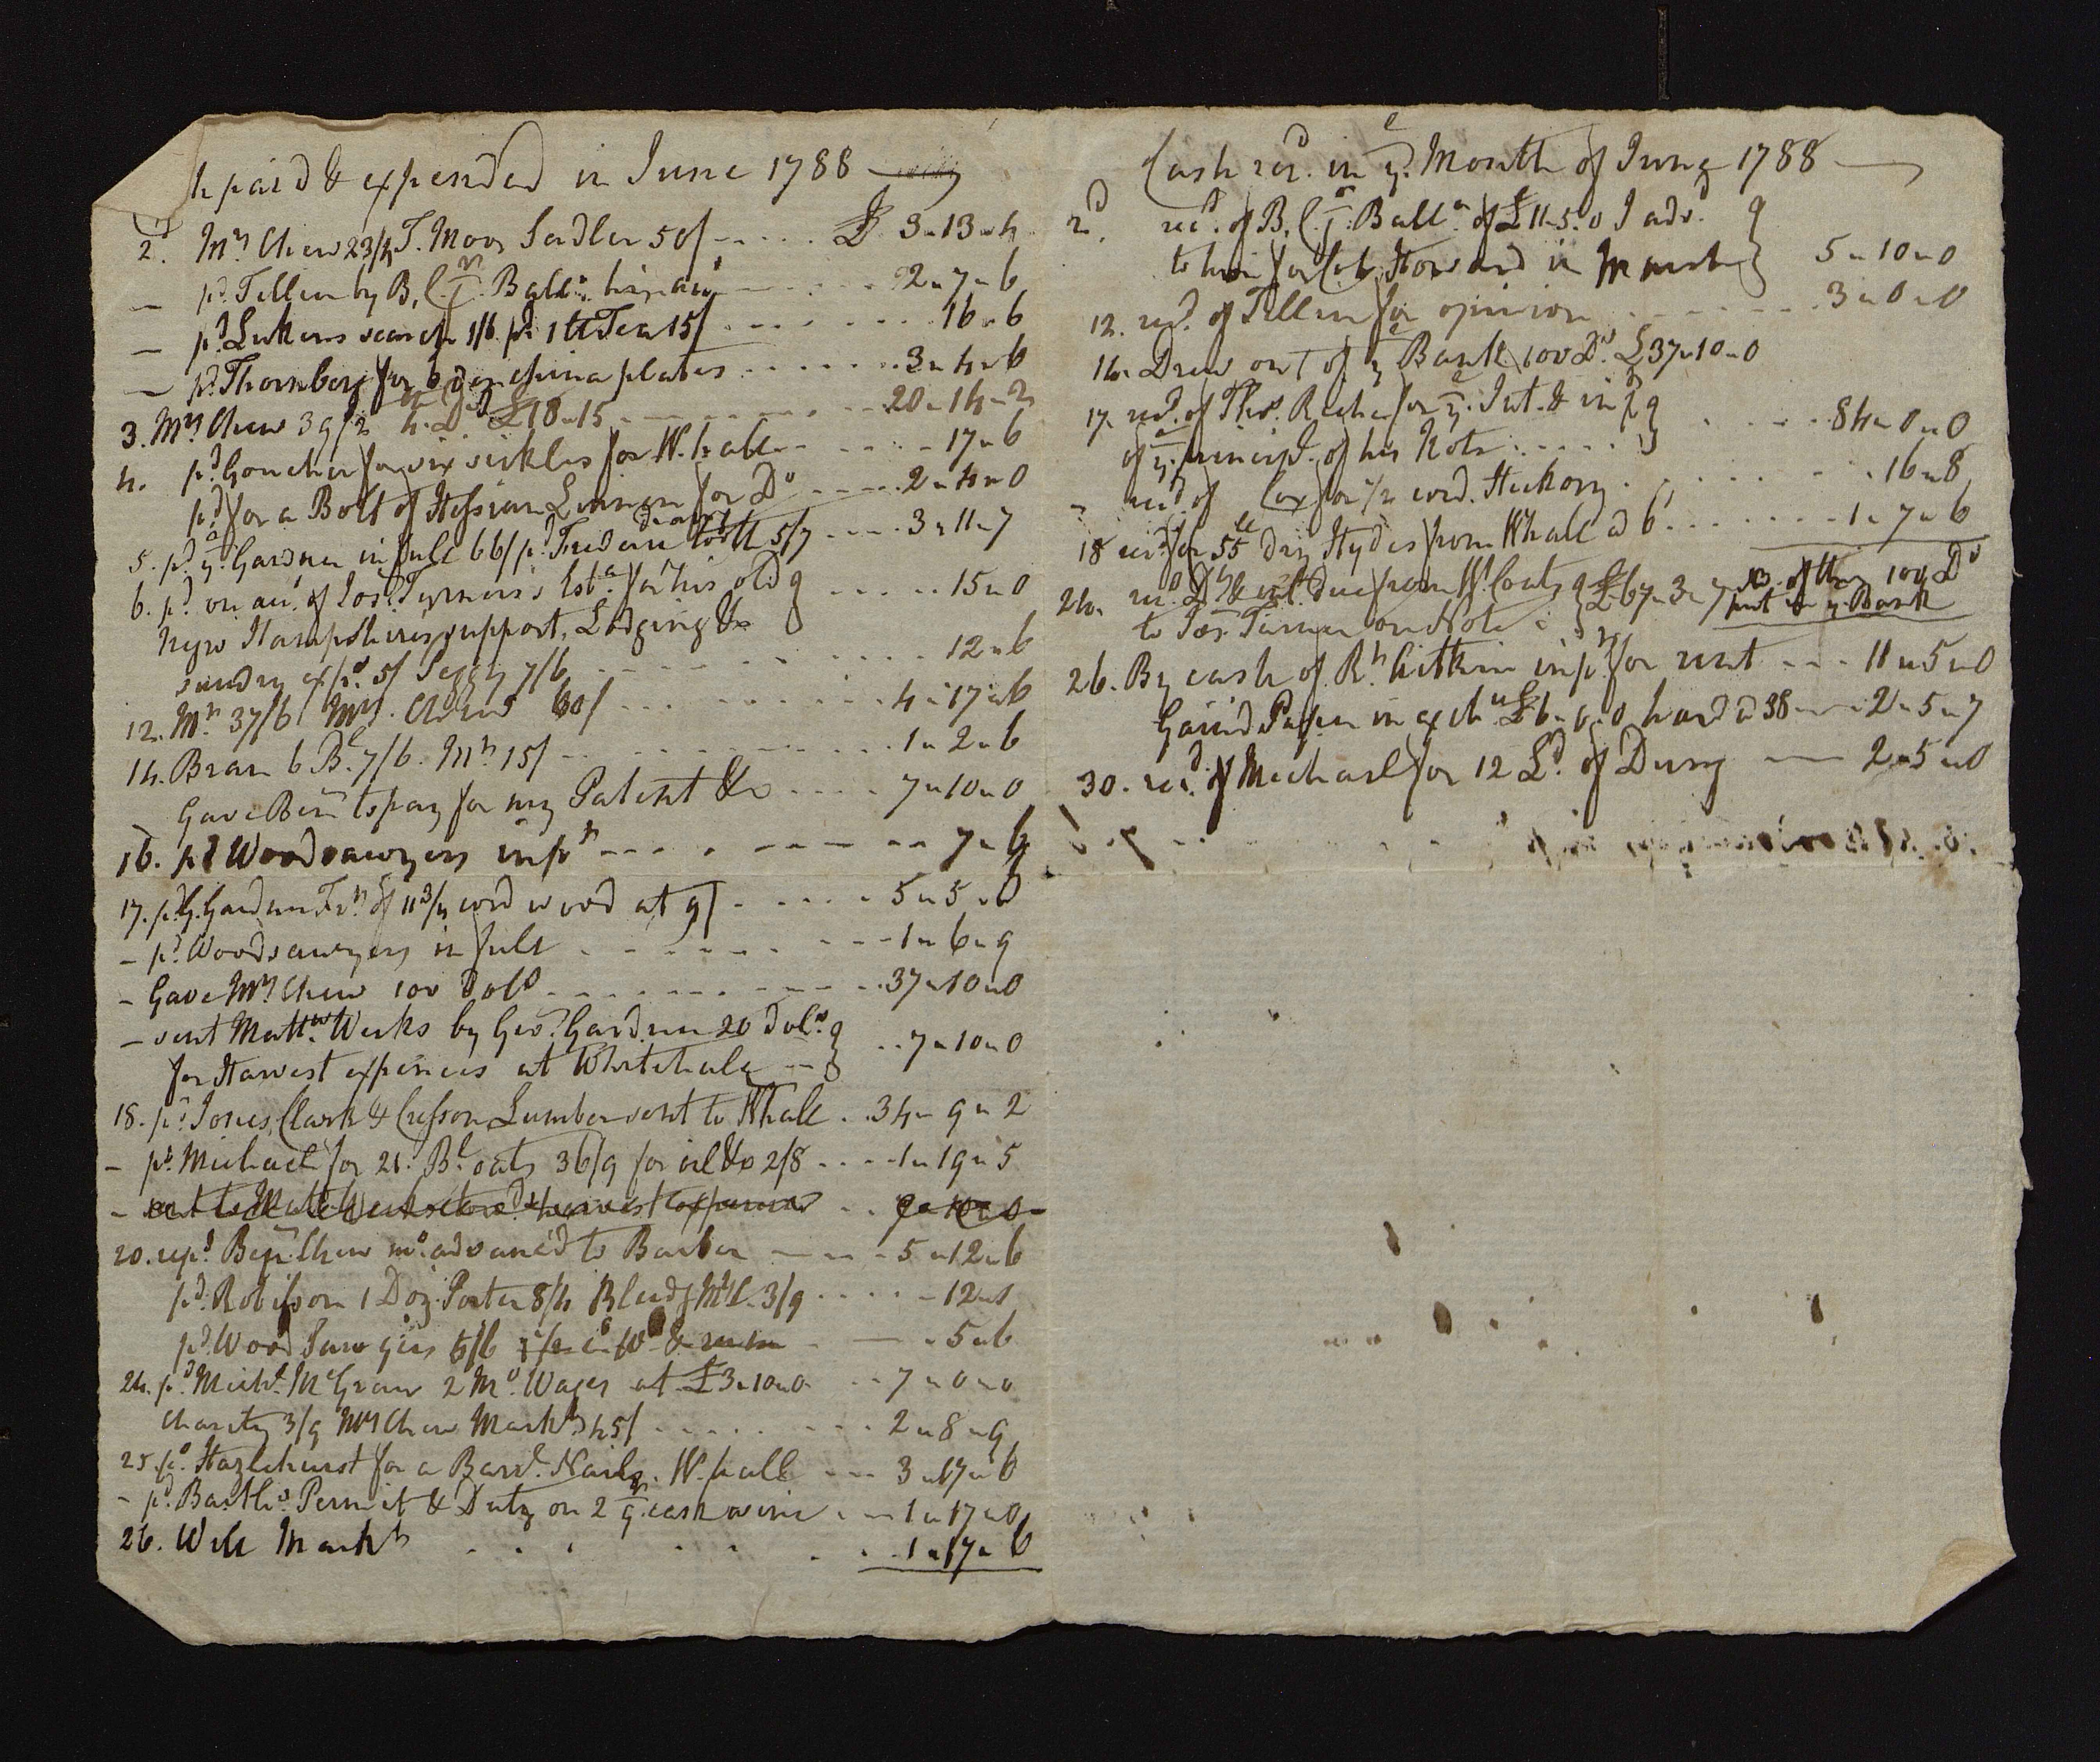 h paid & expended in June 1788
2d. Mrs Chew 23/4 T. Moor Sadler 50/ - - - - £ 3 - 13 - 4
- pd. Tillier by B, C. jr. Balla. his acct - - - - 2 - 7 - 6
- pd. Lukens search 1/6 pd. 1 lb Tea 15/ - - - - 16 - 6
- pd. Thornbery for 6 doz china plates - - - - 3 - 4 - 6
3. Mrs Chew 39/2 £18 - 15 - - - - 20 - 14 - 2
4. pd. Goucher for six sickles for W. hall - - - - 17 - 6
pd for a Bolt of Hessian Linnen for Do - - - - 2 - 4 - 0
5. pd. ye. Gardner in full 66/ pd. Frederic tooth drawr. 5/7 - - - 3 - 11 - 7
6. pd. on acct. of Jos. Turner's Esta. for his old
negro Hampshires support, Lodging &c - - - - 15 - 0
sundry exps. 5/ Peggy 7/6 - - - - 12 - 6
12. Mt. 37/6 Mrs. Chew 60/ - - - - 4 - 17 - 6
14. Bran 6 Bl. 7/6. Mt 15/ - - - - 1 - 2 - 6
Gave Ben to pay for my Patent &c - - - - 7 - 10 - 0
16. pd Woodsawyers in pt - - - - 7 - 6
17. pd. G. Gardner Frt. of 11 3/4 cord wood at 9/ - - - - 5 - 5 - 6
- pd. Woodsawyers in full - - - - 1 - 6 - 9
- Gave Mrs Chew 100 Dolls - - - - 37 - 10 - 0
- sent Mattw. Weeks by Geo. Gardner 20 dols.
for Harvest expences at Whitehall - - 7 - 10 - 0
18. pd. Jones, Clark & Cresson Lumber sent to Whall . . 34 - 9 - 2
- pd. Michael for 21. Bl. oats 36/9 for oil &c 2/8 - - - - 1 - 19 - 5
- sent to Matt. Weeks toward harvest expences - - 7 - 10 - 0
20. repd. Benj. Chew mo. advanc'd to Barber - - - - 5 - 12 - 6
pd. Robisson 1 Doz. Porter 8/4 3/9 - - - - 12 - 1
pd. Wood Sawyers 5/6 - - 5 - 6
24. pd. Michl. McGraw 2 Mo. Wages at £3 - 10 - 0 - - 7 - 0 - 0
charity 3/9 Mrs Chew Markt 45/ - - - - 2 - 8 - 9
25. pd. Hazlehurst for a Barrl. Nails. W. hall - - - 3 - 17 - 6
- pd. Barths. Permit & Duty on 2 qr. cask wine - - 1 - 17 - 0
26. Will Markt - - - - 1 - 17 - 6
Cash recd. in ye. Month of June 1788
2d. recd. of B. C. jr. Balla. of £11 - 5 - 0 I advd.
to him for Howard in March 5 - 10 - 0
12. recd. of Tillier for opinion - - - - 3 - 0 - 0
16. Drew out of ye Bank 100 Ds. £37 - 10 - 0
17. recd. of Thos. for ye. Int. & in pt
of ye. princip. of his Note - - - - 84 - 0 - 0
- recd. of Cox for 1/2 cord. Hickory - - - - 16 - 8
18 recd. for 55 lb dry Hydes from Whall @ 6 - - - - 1 - 7 - 6
24. due from Wm. Coats £67 - 3 - 7 NB. of this 100 Ds
to Jos. Turner on Note put in ye. Bank
26. By cash of Rt. Aitkin in pt for rent - - - 11 - 5 - 0
Gain'd Paper in exch. £6 - 0 - 0 hard @ 38 - - - 2 - 5 - 7
30. recd. of Michael for 12 Ld. of Dung - - 2 - 5 - 0